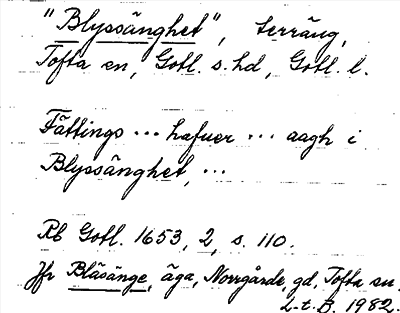 "Blyssänghet", terräng,
Tofta sn, Gotl. s. hd, Gotl. l.
Fättings ... hafuer ... aagh i
Blyssänghet, ...
Rb Gotl. 1653, 2, s. 110.
Jfr Bläsänge, äga, Norrgårde, gd, Tofta sn.
L.t.B. 1982.